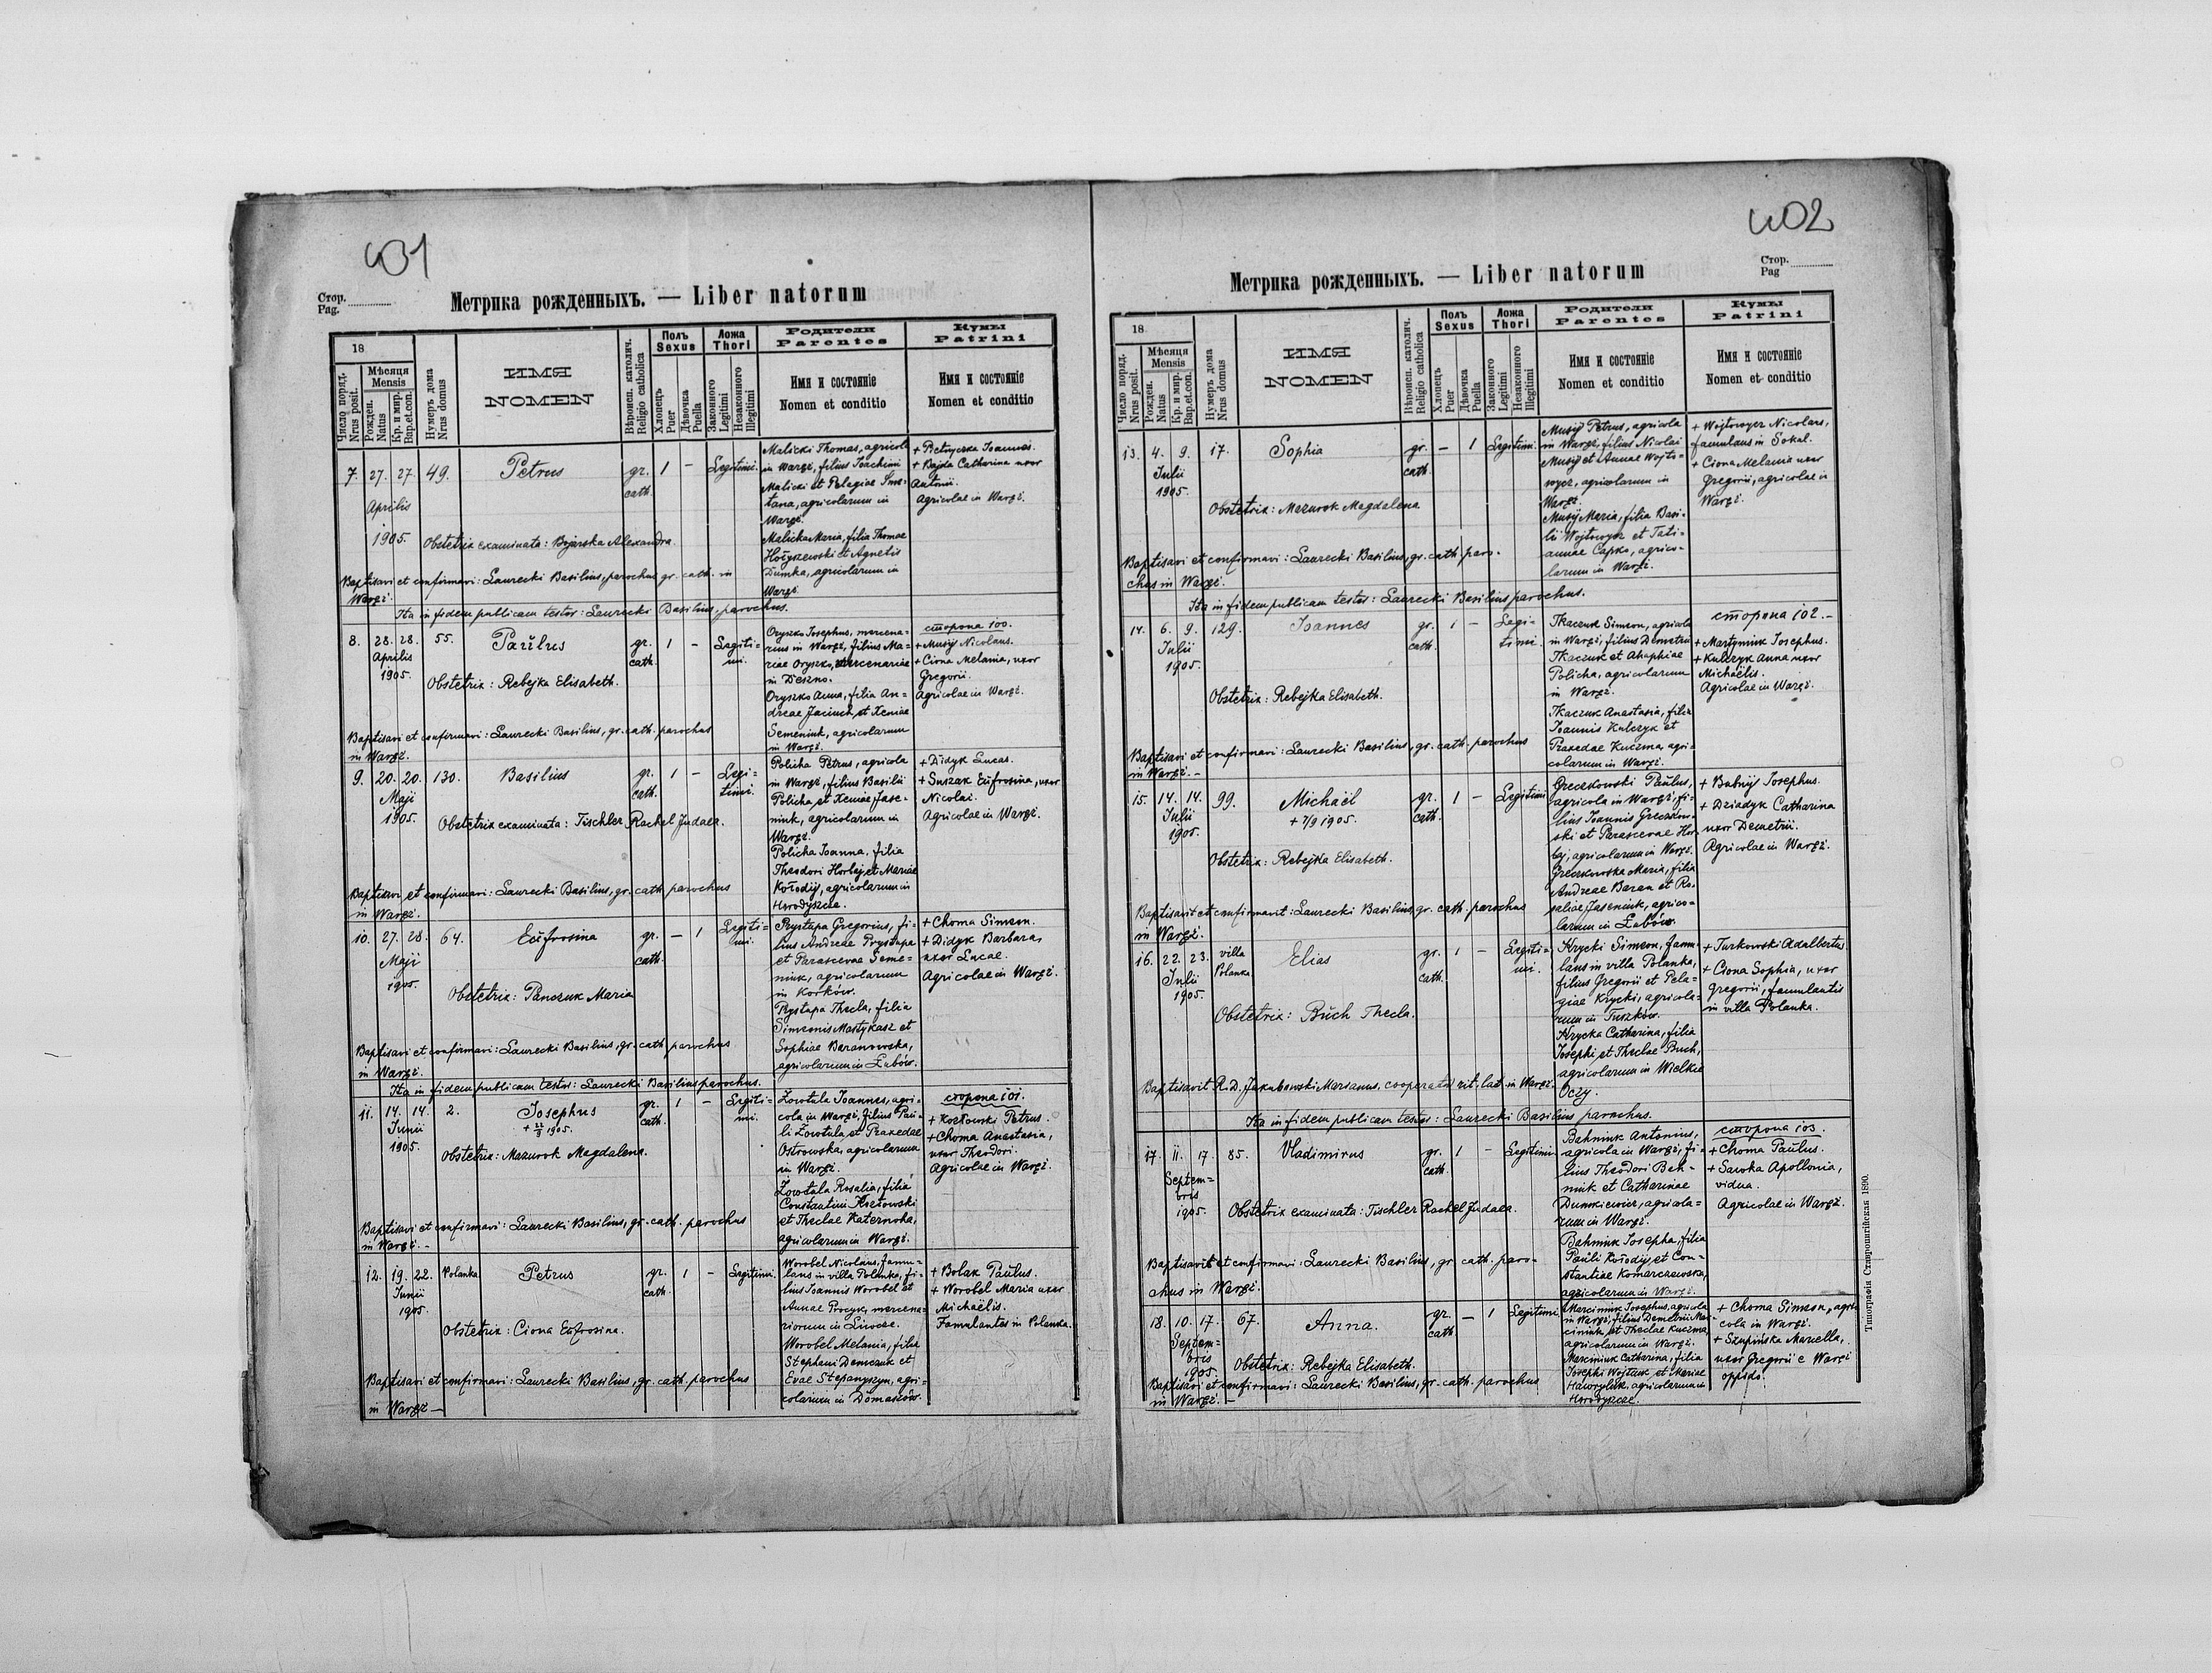 401
Стор.
Pag.
Метрика рожденныхъ. — Liber natorum
18
Число поряд.
Nrus posit.
Мѣсяця
Mensis
Рожден.
Natus
Кр. и мир.
Bap.et.con.
Нумеръ дома
Nrus domus
ИМЯ
NOMEN
Вѣроисп. католич.
Religio catholica
Полъ
Sexus
Хлопецъ
Puer
Дѣвочка
Puella
Ложа
Thori
Законного
Legitimi
Незаконного
Illegitimi
Родители
Parentes
Имя и состояніе
Nomen et conditio
Кумы
Patrini
Имя и состояніе
Nomen et conditio
7. 27. 27. 49. Petrus gr. 1 – Legitimi.
cath.
Aprilis
1905.
Obstetrix examinata: Bojarska Alexandra
Baptisavi et confirmavi: Laurecki Basilius, parochus gr. cath. in
Waręż.
Malicki Thomas, agricola
in Waręż, filius Joachimi
Malicki et Pelagiae Sme-
tana, agricolarum in
Waręż.
Malicka Maria, filia Thomae
Hołyszewski et Agnetis
Dumka, agricolarum in
Waręż
+ Pietnyczka Ioannes.
+ Bajda Catharina uxor
Antonii.
Agricolae in Waręż.
Ita in fidem publicam testor: Laurecki Basilius, parochus.
8. 28. 28. 55. Paŭlus gr. 1 – Legiti-
cath. mi.
Aprilis
1905.
Obstetrix: Rebejka Elisabeth.
Baptisavi et confirmavi: Laurecki Basilius, gr. cath. parochus
in Waręż.
Oryszko Iosephus, mercena-
rius in Waręż, filius Ma-
riae Oryszko, mercenariae
in Deszno.
Oryszko Anna, filia An-
dreae Jaciuch, et Xeniae
Semeniuk, agricolarum
in Waręż.
сторона 100.
+ Musij Nicolaus.
+ Ciona Melania, uxor
Gregorii.
Agricolae in Waręż.
9. 20. 20. 130. Basilius gr. 1 – Legi-
cath. timi.
Maji
1905.
Obstetrix examinata: Tischler Rachel Judaea.
Baptisavi et confirmavi: Laurecki Basilius, gr. cath. parochus
in Waręż.
Policha Petrus, agricola
in Waręż, filius Basilii
Policha et Xeniae Jase-
niuk, agricolarum in
Waręż.
Policha Ioanna, filia
Theodori Horbaj, et Mariae
Kołodij, agricolarum in
Horodyszcze.
+ Didyk Lucas.
+ Suszak Eŭfrosina, uxor
Nicolai.
Agricolae in Waręż.
10. 27. 28. 64. Eŭfrosina gr. – 1 Legiti-
cath. mi.
Maji
1905.
Obstetrix: Panczuk Maria
Baptisavi et confirmavi: Laurecki Basilius, gr. cath. parochus
in Waręż.
Prystupa Gregorius, fi-
lius Andreae Prystupa
et Parascevae Seme-
niuk, agricolarum
in Korków.
Prystupa Thecla, filia
Simeonis Mastykasz et
Sophiae Baranowska,
agricolarum in Łubów.
+ Choma Simeon.
+ Didyk Barbara,
uxor Lucae.
Agricolae in Waręż.
Ita in fidem publicam testor: Laurecki Basilius parochus.
11. 14. 14. 2. Josephus gr. 1 – Legiti-
cath. mi.
Junii
1905.
Obstetrix: Mazurok Magdalena.
Baptisavi et confirmavi: Laurecki Basilius, gr. cath. parochus
in Waręż. –
Zowtula Ioannes, agri-
cola in Waręż, filius Paŭ-
li Zowtula et Praxedae
Ostrowska, agricolarum
in Waręż.
Zowtula Rosalia, filia
Constantini Kozłowski
et Theclae Katernoha,
agricolarum in Waręż.
сторона 101.
+ Kozłowski Petrus.
+ Choma Anastasia,
uxor Theodori.
Agricolae in Waręż.
12. 19. 22. Polanka Petrus gr. 1 – Legitimi.
cath.
Junii
1905.
Obstetrix: Ciona Eŭfrosina.
Baptisavi et confirmavi: Laurecki Basilius, gr. cath. parochus
in Waręż –
Worobel Nicolaus, famu-
lans in villa Polanka, fi-
lius Ioannis Worobel et
Annae Procyk, mercena-
riorum in Liwcze.
Worobel Melania, filia
Stephani Demczuk et
Evae Stepanyszyn, agri-
colarum in Domaszów.
+ Bolak Paŭlus.
+ Worobel Maria uxor
Michaëlis.
Famulantes in Polanka.
402
Стор.
Pag
Метрика рожденныхъ. — Liber natorum
18
Число поряд.
Nrus posit.
Мѣсяця
Mensis
Рожден.
Natus
Кр. и мир.
Bap.et.con.
Нумеръ дома
Nrus domus
ИМЯ
NOMEN
Вѣроисп. католич.
Religio catholica
Полъ
Sexus
Хлопецъ
Puer
Дѣвочка
Puella
Ложа
Thori
Законного
Legitimi
Незаконного
Illegitimi
Родители
Parentes
Имя и состояніе
Nomen et conditio
Кумы
Patrini
Имя и состояніе
Nomen et conditio
13. 4. 9. 17. Sophia gr. – 1 Legitimi.
cath.
Julii
1905.
Obstetrix: Mazurok Magdalena
Baptisavi et confirmavi: Laurecki Basilius, gr. cath. paro-
chus in Waręż.
Musij Petrus, agricola
in Waręż, filius Nicolai
Musij et Annae Wojto-
wycz, agricolarum in
Waręż.
Musij Maria, filia Basi-
lii Wojtowycz et Tati-
annae Capko, agrico-
larum in Waręż.
+ Wojtowycz Nicolaus,
famulans in Sokal.
+ Ciona Melania uxor
Gregorii, agricolae in
Waręż.
Ita in fidem publicam testor: Laurecki Basilius parochus.
14. 6. 9. 129. Ioannes gr. 1 – Legi-
cath. timi.
Julii
1905.
Obstetrix: Rebejka Elisabeth.
Baptisavi et confirmavi: Laurecki Basilius, gr. cath. parochus
in Waręż. –
Tkaczuk Simeon, agricola
in Waręż, filius Demetrii
Tkaczuk et Ahaphiae
Policha, agricolarum
in Waręż.
Tkaczuk Anastasia, filia
Ioannis Kulczyk et
Praxedae Kuczma, agri-
colarum in Waręż.
сторона 102. –
+ Martyniuk Iosephus.
+ Kulczyk Anna uxor
Michaëlis.
Agricolae in Waręż.
15. 14. 14. 99. Michaël gr. 1 – Legitimi
cath.
+ 7/9 1905.
Julii
1905.
Obstetrix: Rebejka Elisabeth.
Baptisavit et confirmavit: Laurecki Basilius, gr. cath. parochus
in Waręż.
Greczkowski Paŭlus,
agricola in Waręż, fi-
lius Ioannis Greczkow-
ski et Parascevae Hor-
baj, agricolarum in Waręż.
Greczkowska Maria, filia
Andreae Baran et Ro-
saliae Jaseniuk, agrico-
larum in Łubów.
+ Bubnij Iosephus.
+ Dziadyk Catharina
uxor Demetrii.
Agricolae in Waręż.
16. 22. 23. villa Polanka Elias gr. 1 – Legiti-
cath. mi.
Julii
1905.
Obstetrix: Bŭch Thecla.
Baptisavit R.D. Jakubowski Marianus, cooperator rit. lat. in Waręż.
Krycki Simeon, famu-
lans in villa Polanka,
filius Gregorii et Pela-
giae Krycki, agricola-
rum in Tuszków.
Krycka Catharina, filia
Iosephi et Theclae Buch,
agricolarum in Wielkie
Oczy.
+ Turkowski Adalbertus
+ Ciona Sophia, uxor
Gregorii, famulantis
in villa Polanka.
Ita in fidem publicam testor: Laurecki Basilius parochus.
17. 11. 17. 85. Vladimirus gr. 1 – Legitimi
cath.
Septem-
bris
1905.
Obstetrix examinata: Tischler Rachel Judaea.
Baptisavit et confirmavi: Laurecki Basilius, gr. cath. paro-
chus in Waręż.
Bahniuk Antonius,
agricola in Waręż, fi-
lius Theodori Bah-
niuk et Catharinae
Dunkiewicz, agricola-
rum in Waręż.
Bahniuk Iosepha, filia
Paŭli Kołodij et Con-
stantiae Komarczewska,
agricolarum in Waręż.
сторона 103.
+ Choma Paŭlus.
+ Sawka Apollonia,
vidua.
Agricolae in Waręż.
18. 10. 17. 67. Anna. gr. – 1 Legitimi
cath.
Septem-
bris
1905.
Obstetrix: Rebejka Elisabeth.
Baptisavi et confirmavi: Laurecki Basilius, gr. cath. parochus
in Waręż. –
Marciniuk Iosephus, agricola
in Waręż, filius Demetrii Mar-
ciniuk, et Theclae Kuczma,
agricolarum in Waręż.
Marciniuk Catharina, filia
Iosephi Wojtiuk et Mariae
Hawryluk, agricolarum in
Horodyszcze.
+ Choma Simeon, agri-
cola in Waręż.
+ Szupińska Marcella,
uxor Gregorii e Waręż
oppido.
Типографія Ставропигійская 1890.